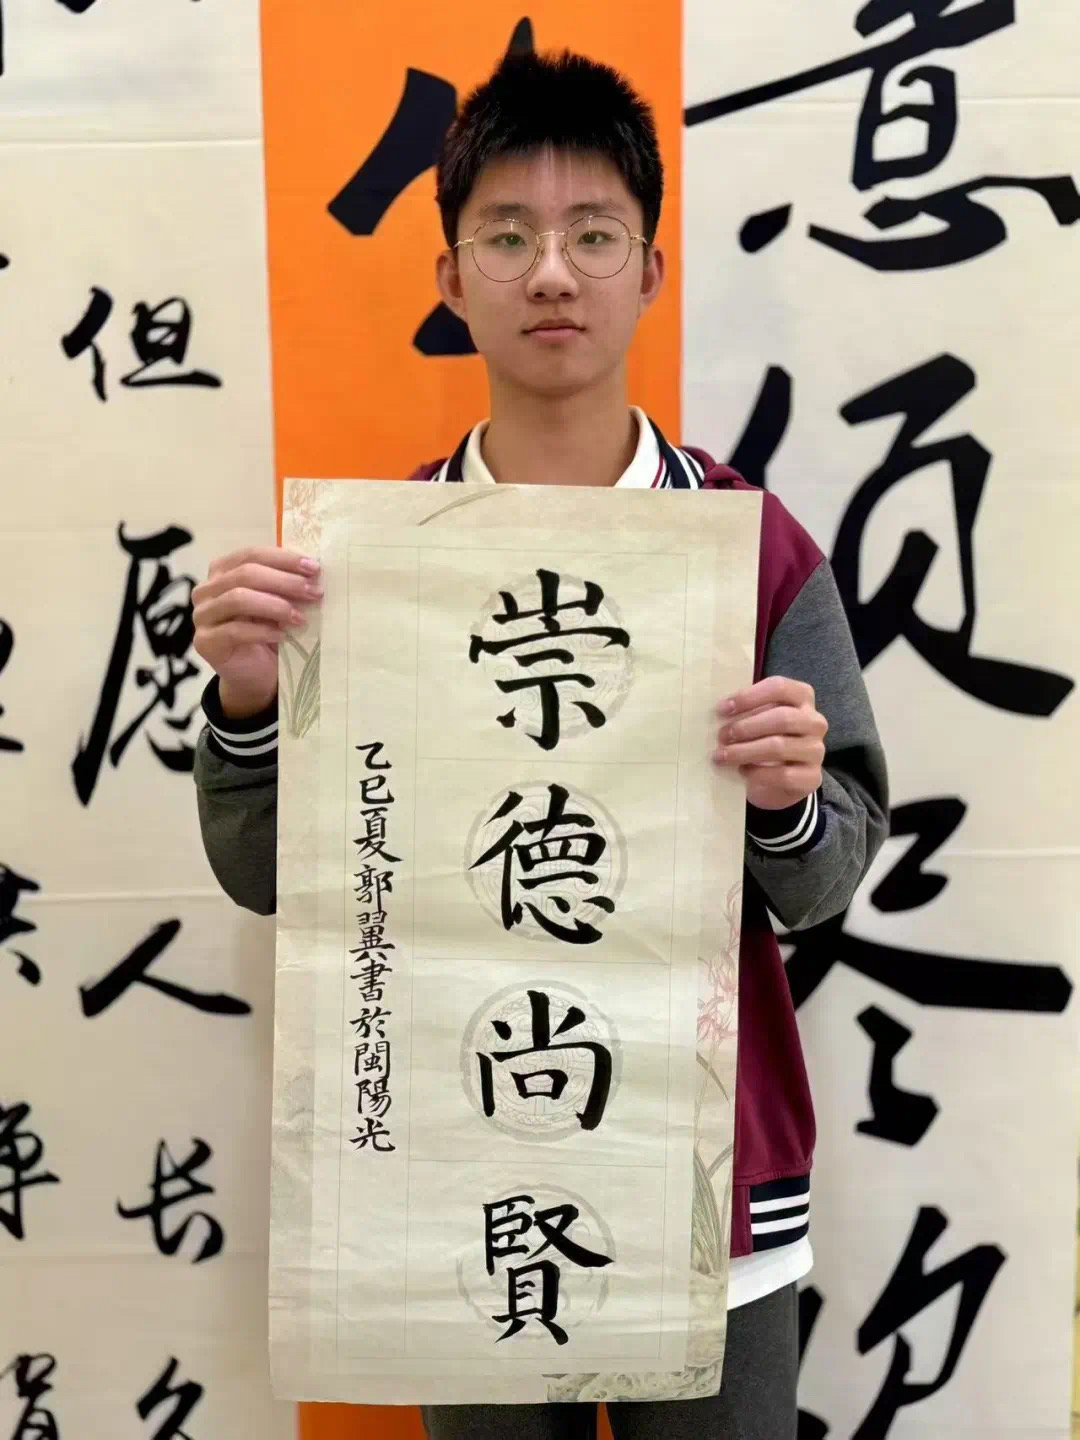 崇德尚賢
乙巳夏郭翼書於閩陽光
意須尽欢
但愿人长久